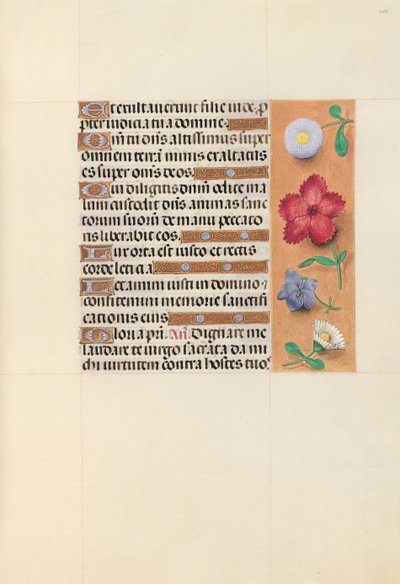 Et exultaverunt filie iude. p
pter iudicia tua domine.
Qm̄ tu dn̄s altissimus super
omnem terrā nimis exaltatus
es super om̄s deos.
Qui diligitis dn̄m odite ma
lum custodit dn̄s animas sanc
torum suorū de manu peccato
ris liberabit eos.
Lux orta est iusto et rectis
corde leticia
Letamini iusti in domino:
confitemini memorie sanctifi
cationis eius
Gloria pr̄i. Añ. Dignare me
laudare te virgo sacrata da mi
chi virtutem contra hostes tuos.